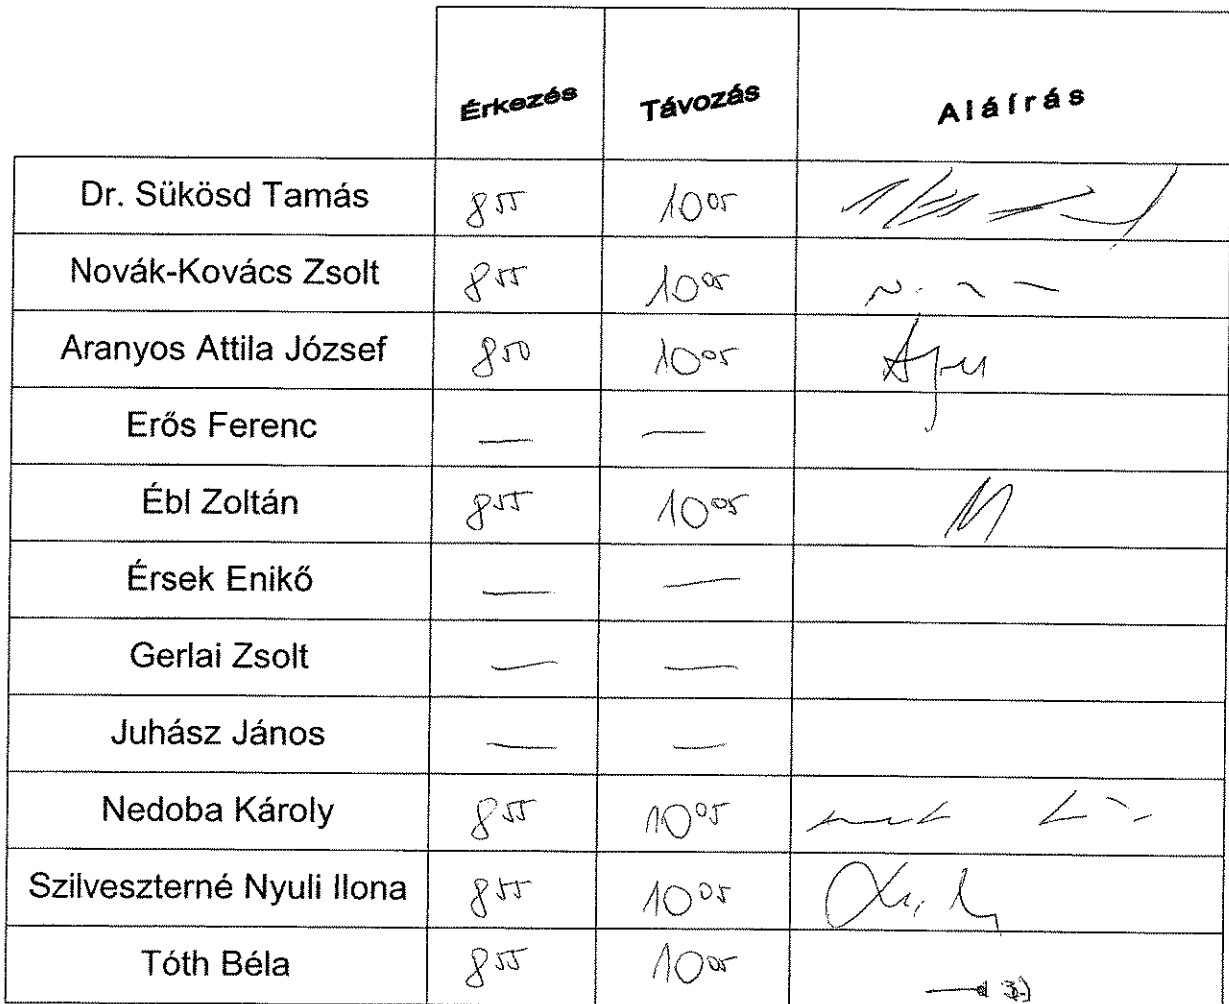 Érkezés Távozás Aláírás
Dr. Sükösd Tamás 8 55 10 05
Novák-Kovács Zsolt 8 55 10 05
Aranyos Attila József 8 50 10 05
Erős Ferenc — —
Ébl Zoltán 8 55 10 05
Érsek Enikő — —
Gerlai Zsolt — —
Juhász János — —
Nedoba Károly 8 55 10 05
Szilveszterné Nyuli Ilona 8 55 10 05
Tóth Béla 8 55 10 05